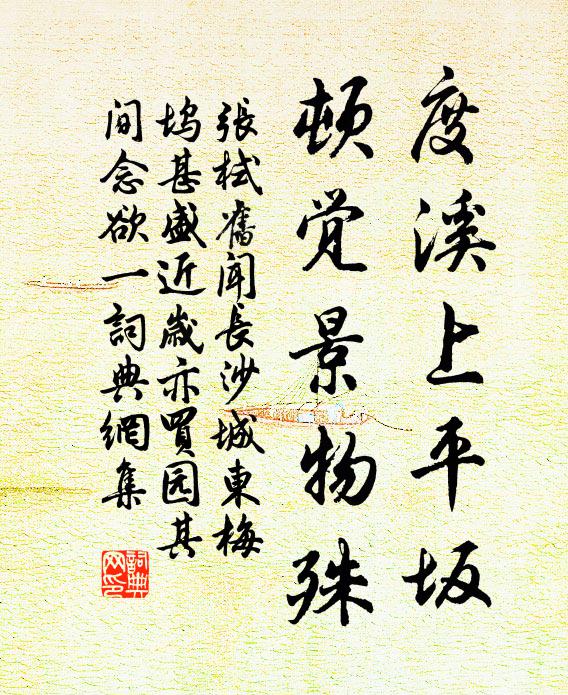 度溪上平坂
顿觉景物殊
張栻舊聞長沙城東梅
塢甚盛近歲亦買园其
间念欲一詞典網集
詞典网印